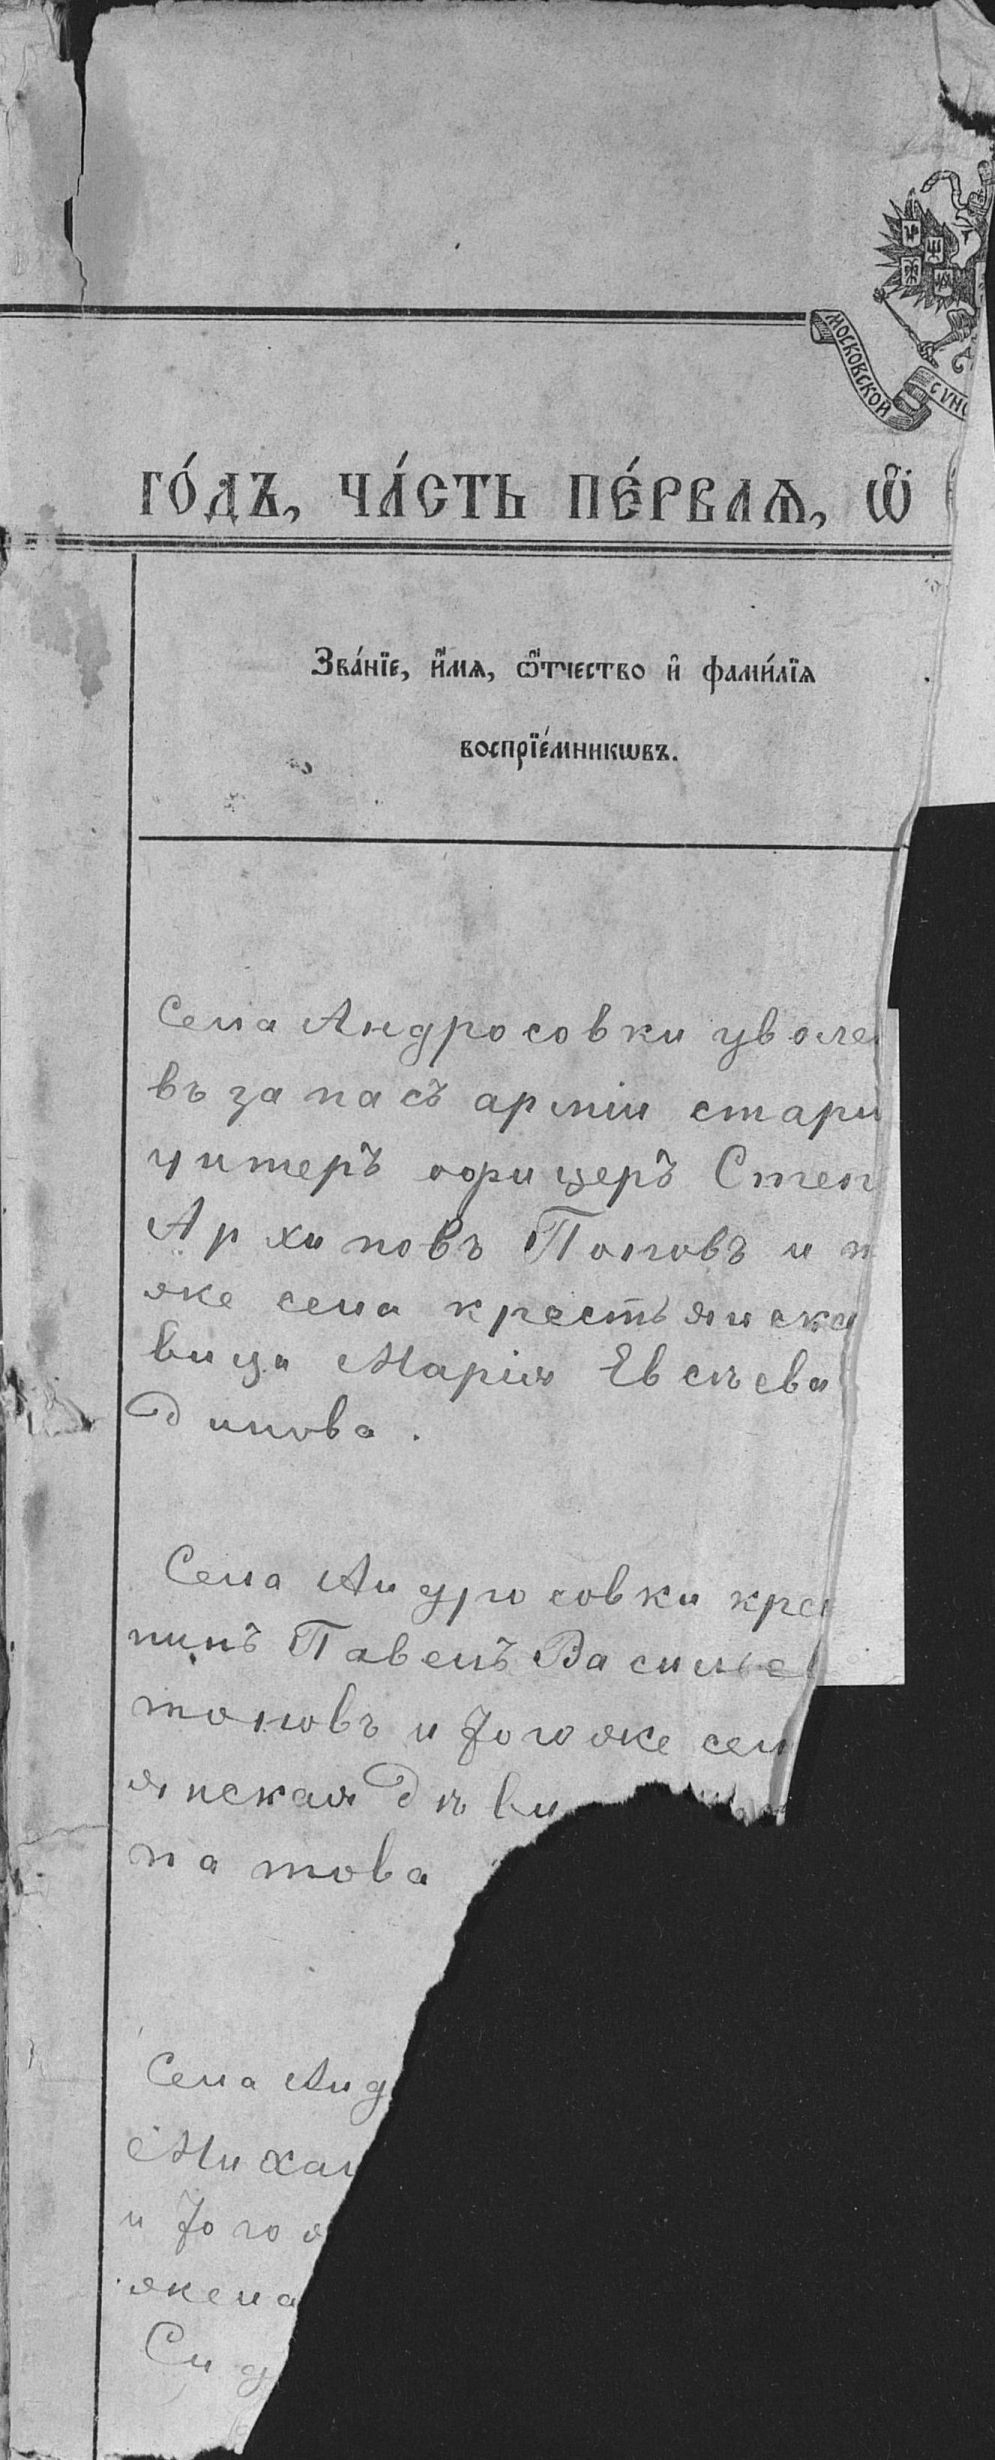 МОСКОВСКОЙ
СѴНО
ГО́ДЪ, ЧА́СТЬ ПЕ́РВАѦ, Ѿ
Зва́нїе, и҆́мѧ, ѻ҆́тчество и҆ фами́лїѧ
воспрїе́мникѡвъ.
Села Андросовки уволе
въ запасъ арміи стари
унтеръ офицеръ Степ
Архиповъ Поповъ и т
же села крестьянска
вица Марія Евсѣева
динова.
Села Андросовки крес
нинъ Павелъ Василье
тоновъ и того же сел
янская дѣви
патова
Села Анд
Михаи
и того ж
жена
Сид